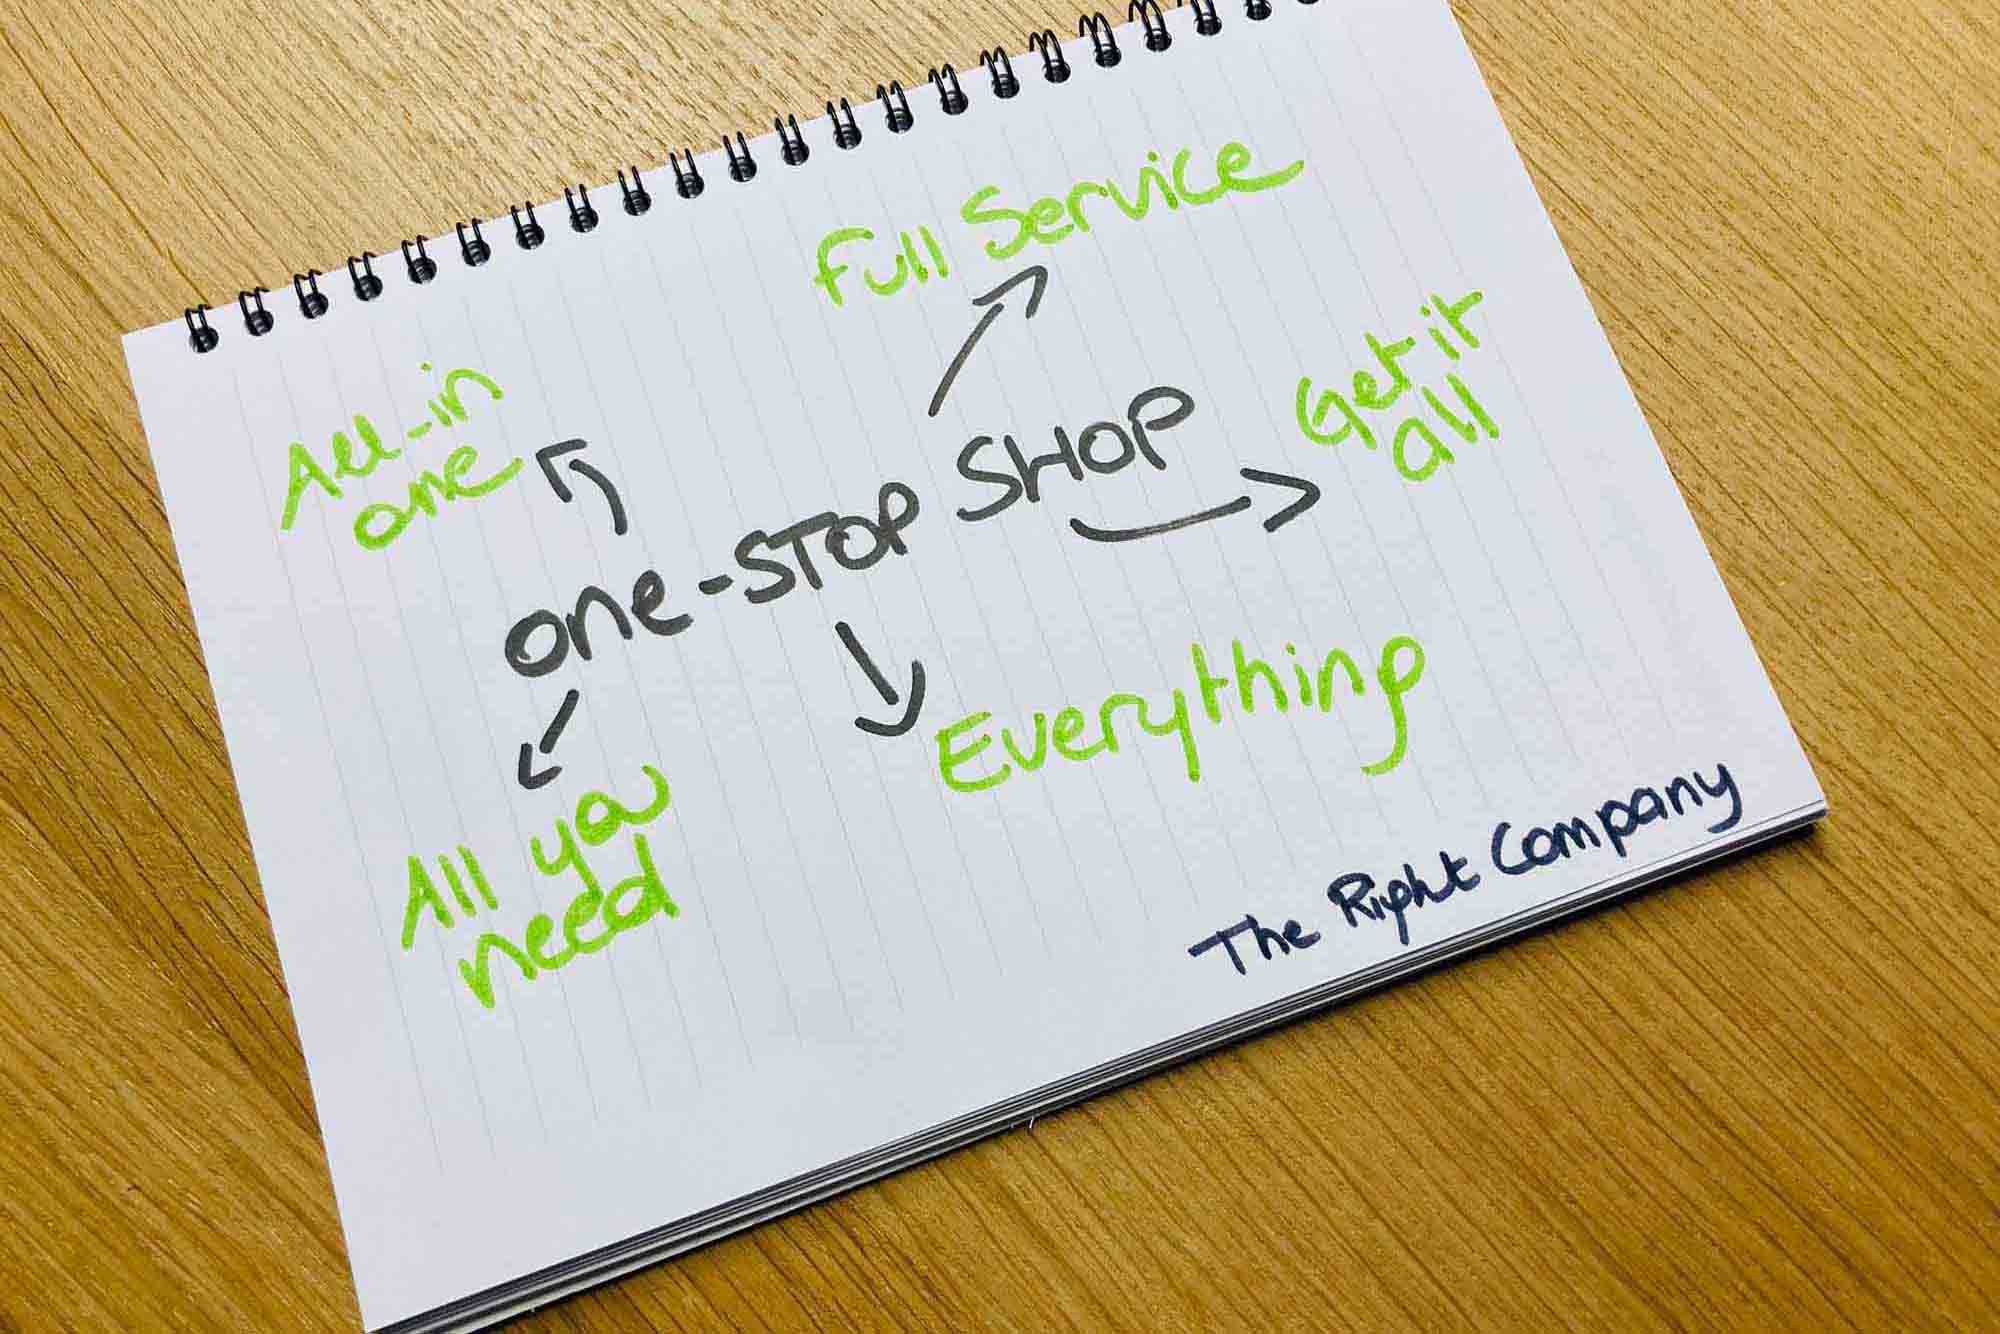 Full Service
All-in
one
Get it
all
one-STOP SHOP
Everything
All you
need
The Right Company